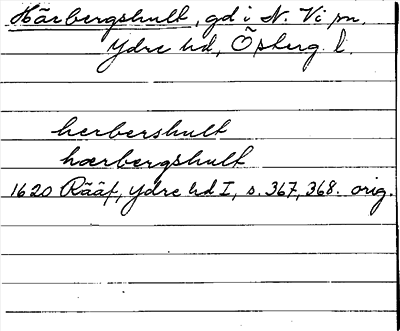 Härbergshult, gd i N. Vi sn,
Ydre hd, Östergl.
herbershult
hærbergshult
1620 Rääf, Ydre hd I, s. 367, 368. orig.